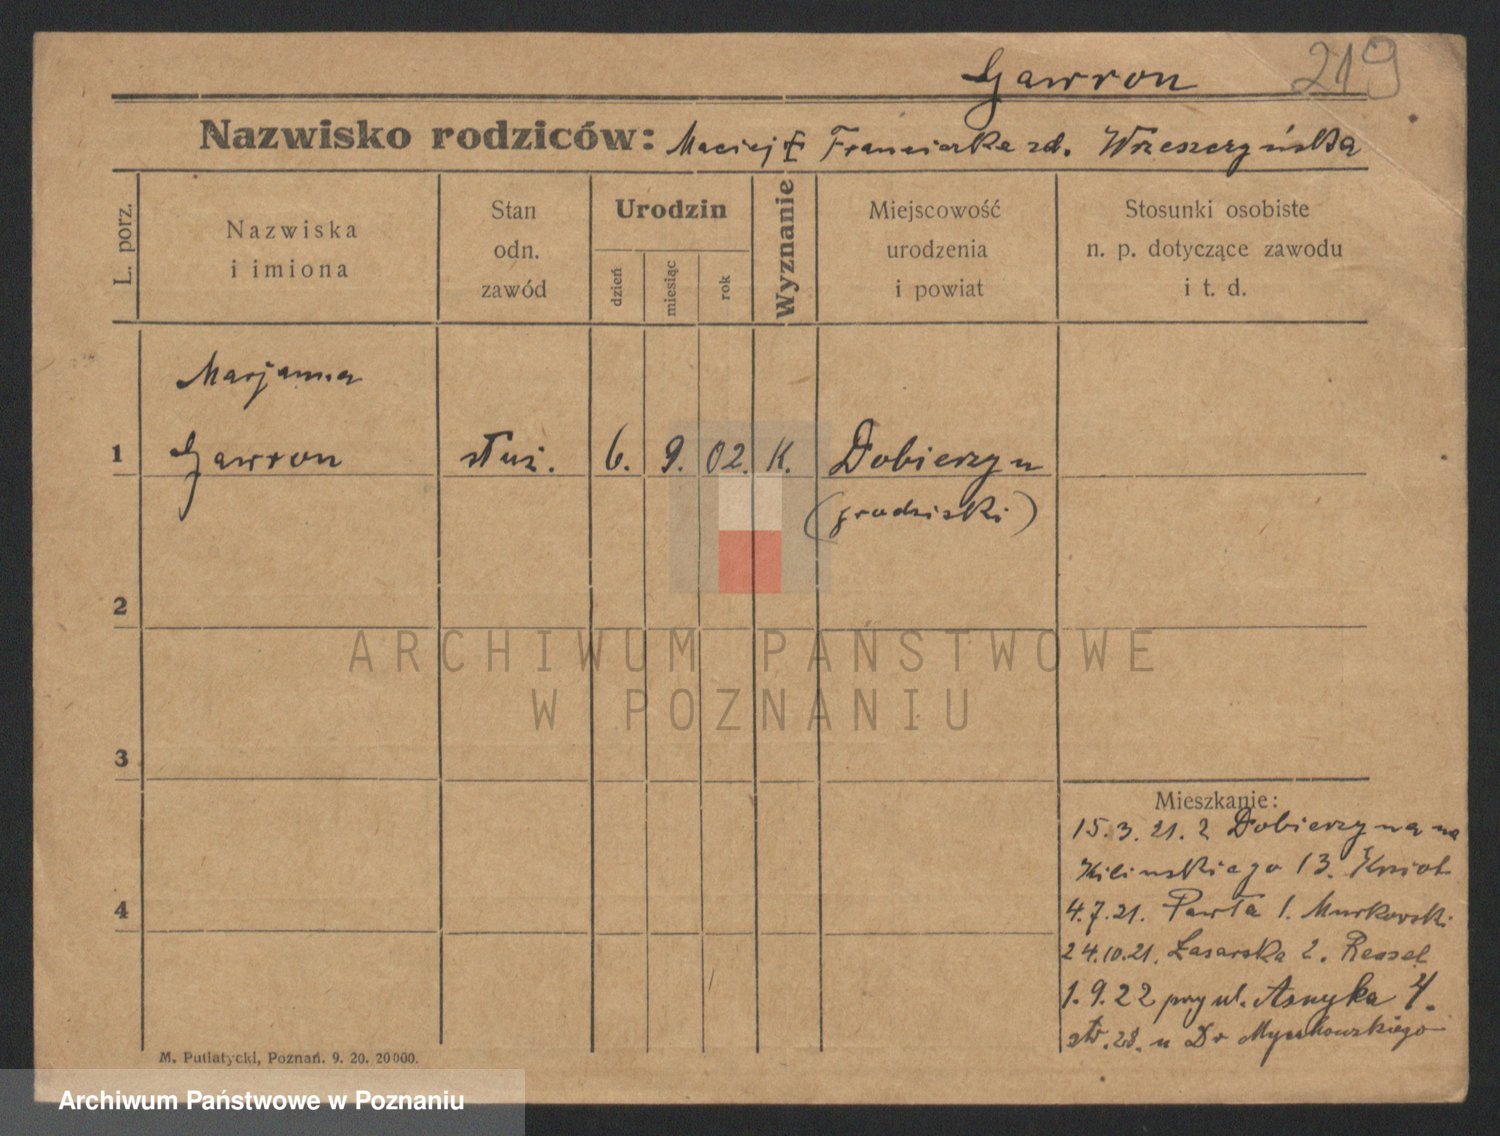 Gawron 219
Nazwisko rodziców: Maciej i Franciszka zd. Wrzeszczyńska
L. porz.
Nazwiska
i imiona
Stan
odn.
zawód
Urodzin
dzień
miesiąc
rok
Wyznanie
Miejscowość
urodzenia
i powiat
Stosunki osobiste
n. p. dotyczące zawodu
i t. d.
Marjanna
1 Gawron służ. 6. 9. 02. K. Dobierzyn
(grodziski)
2
ARCHIWUM PAŃSTWOWE
W POZNANIU
3
Mieszkanie:
15.3.21. z Dobierzyna na
Kilinskiego 13.
4
4.7.21. Pawła 1. Murkowski
24.10.21. Łazarska 2.
1.9.22 przy ul. Asnyka 4.
str. 28. u Dr
M. Putiatycki, Poznań. 9. 20. 20000.
Archiwum Państwowe w Poznaniu